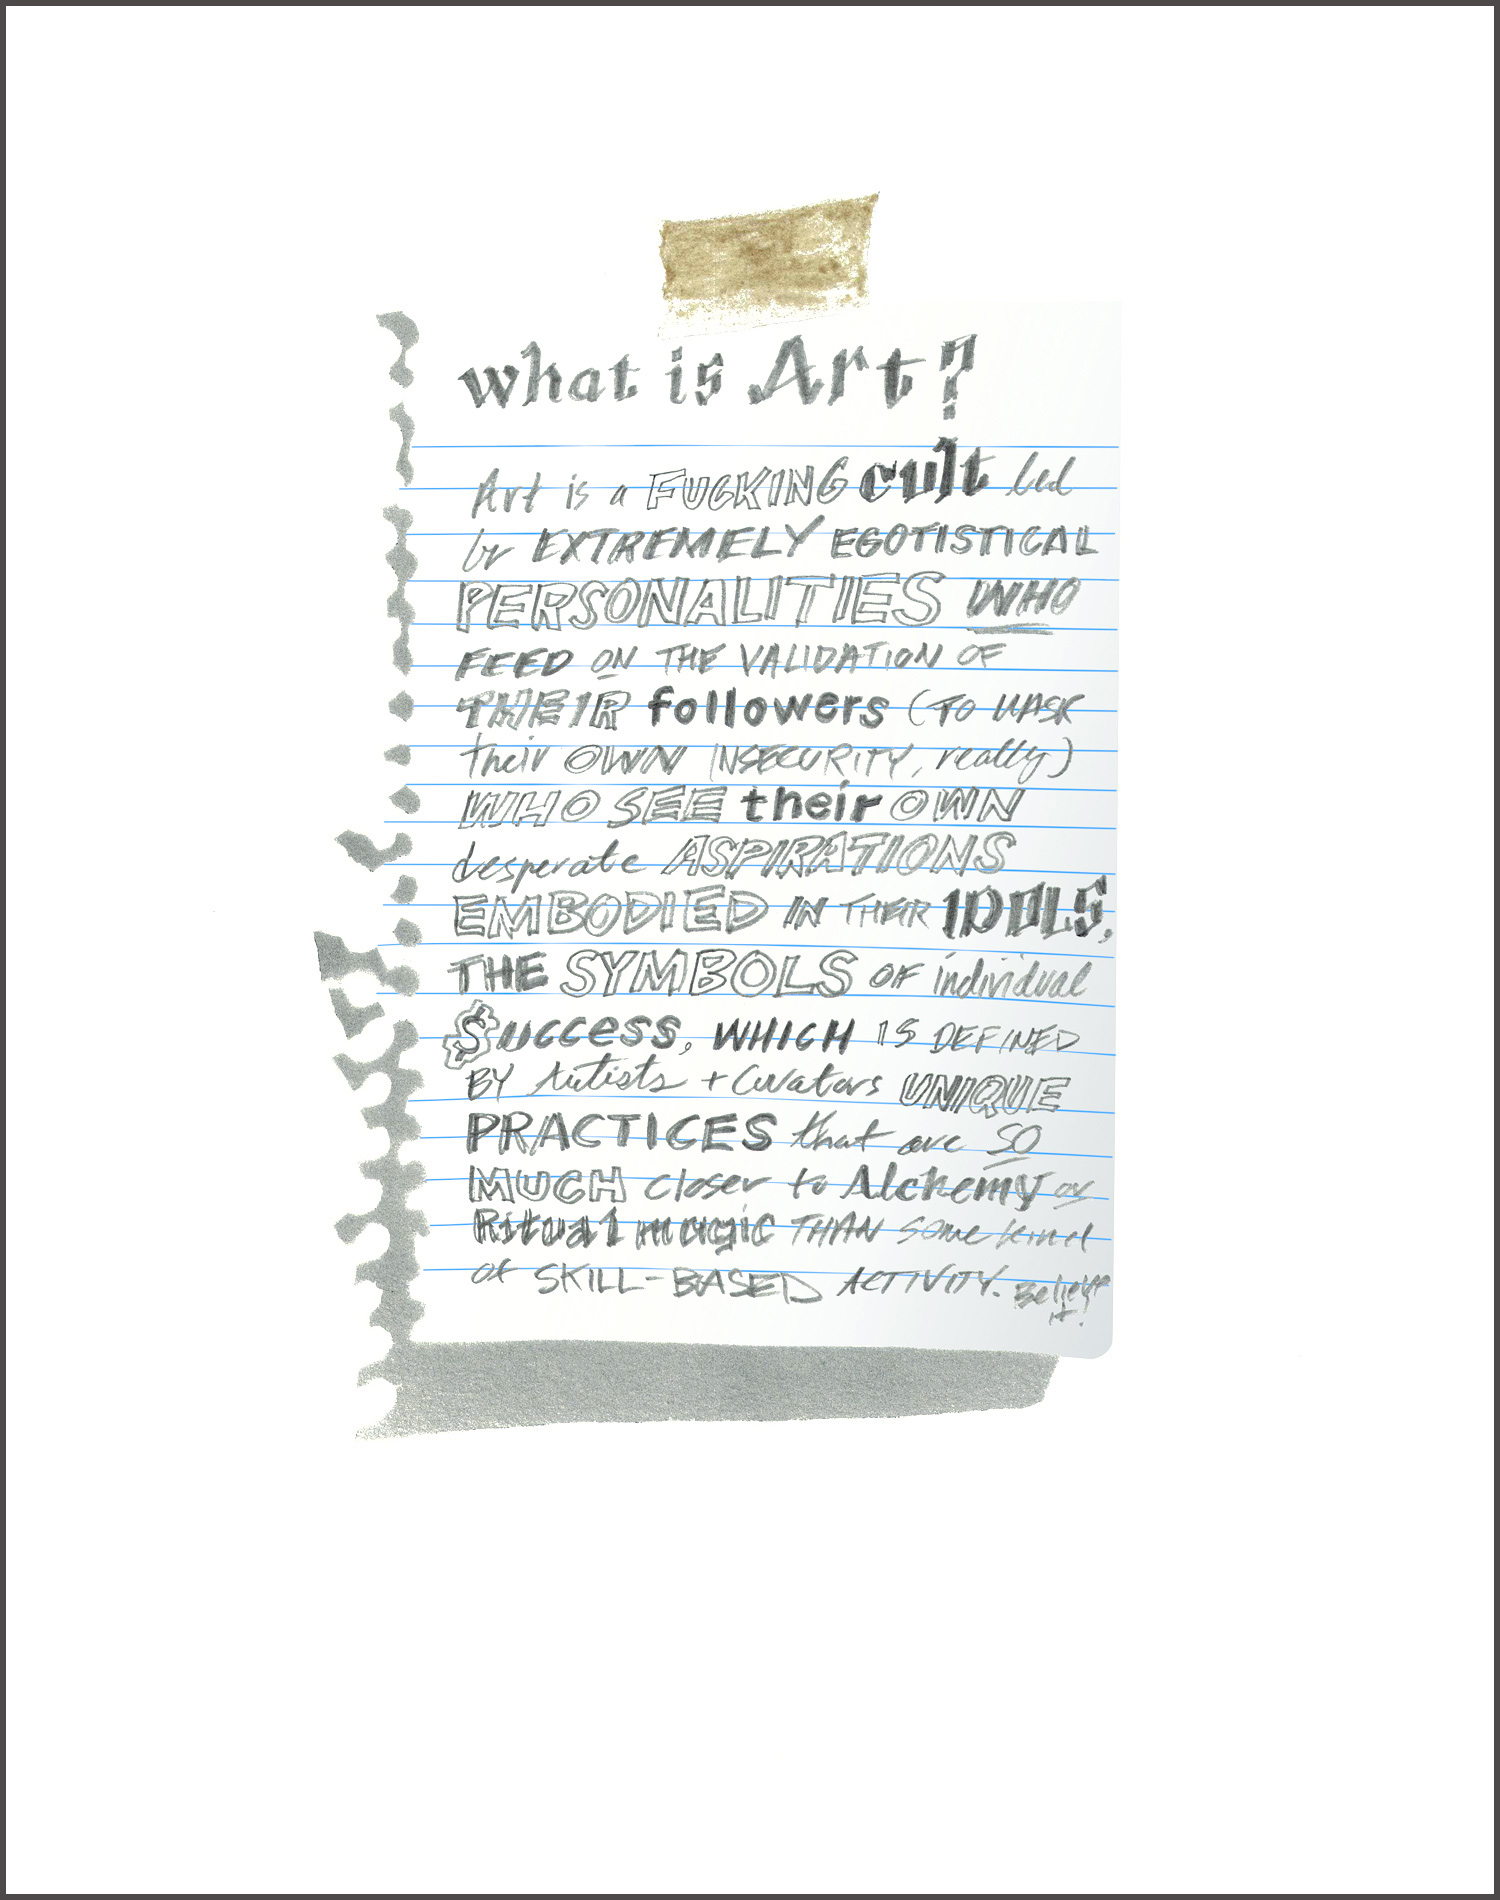 what is Art?
Art is a FUCKING cult led
by EXTREMELY EGOTISTICAL
PERSONALITIES WHO
FEED ON THE VALIDATION OF
THEIR followers (TO MASK
their OWN INSECURITY, really)
WHO SEE their OWN
desperate ASPIRATIONS
EMBODIED IN THEIR IDOLS,
THE SYMBOLS OF individual
$uccess, WHICH IS DEFINED
BY Artists + Curators UNIQUE
PRACTICES that are SO
MUCH closer to Alchemy or
Ritual magic THAN some kernel
of SKILL-BASED ACTIVITY. Believe
it!